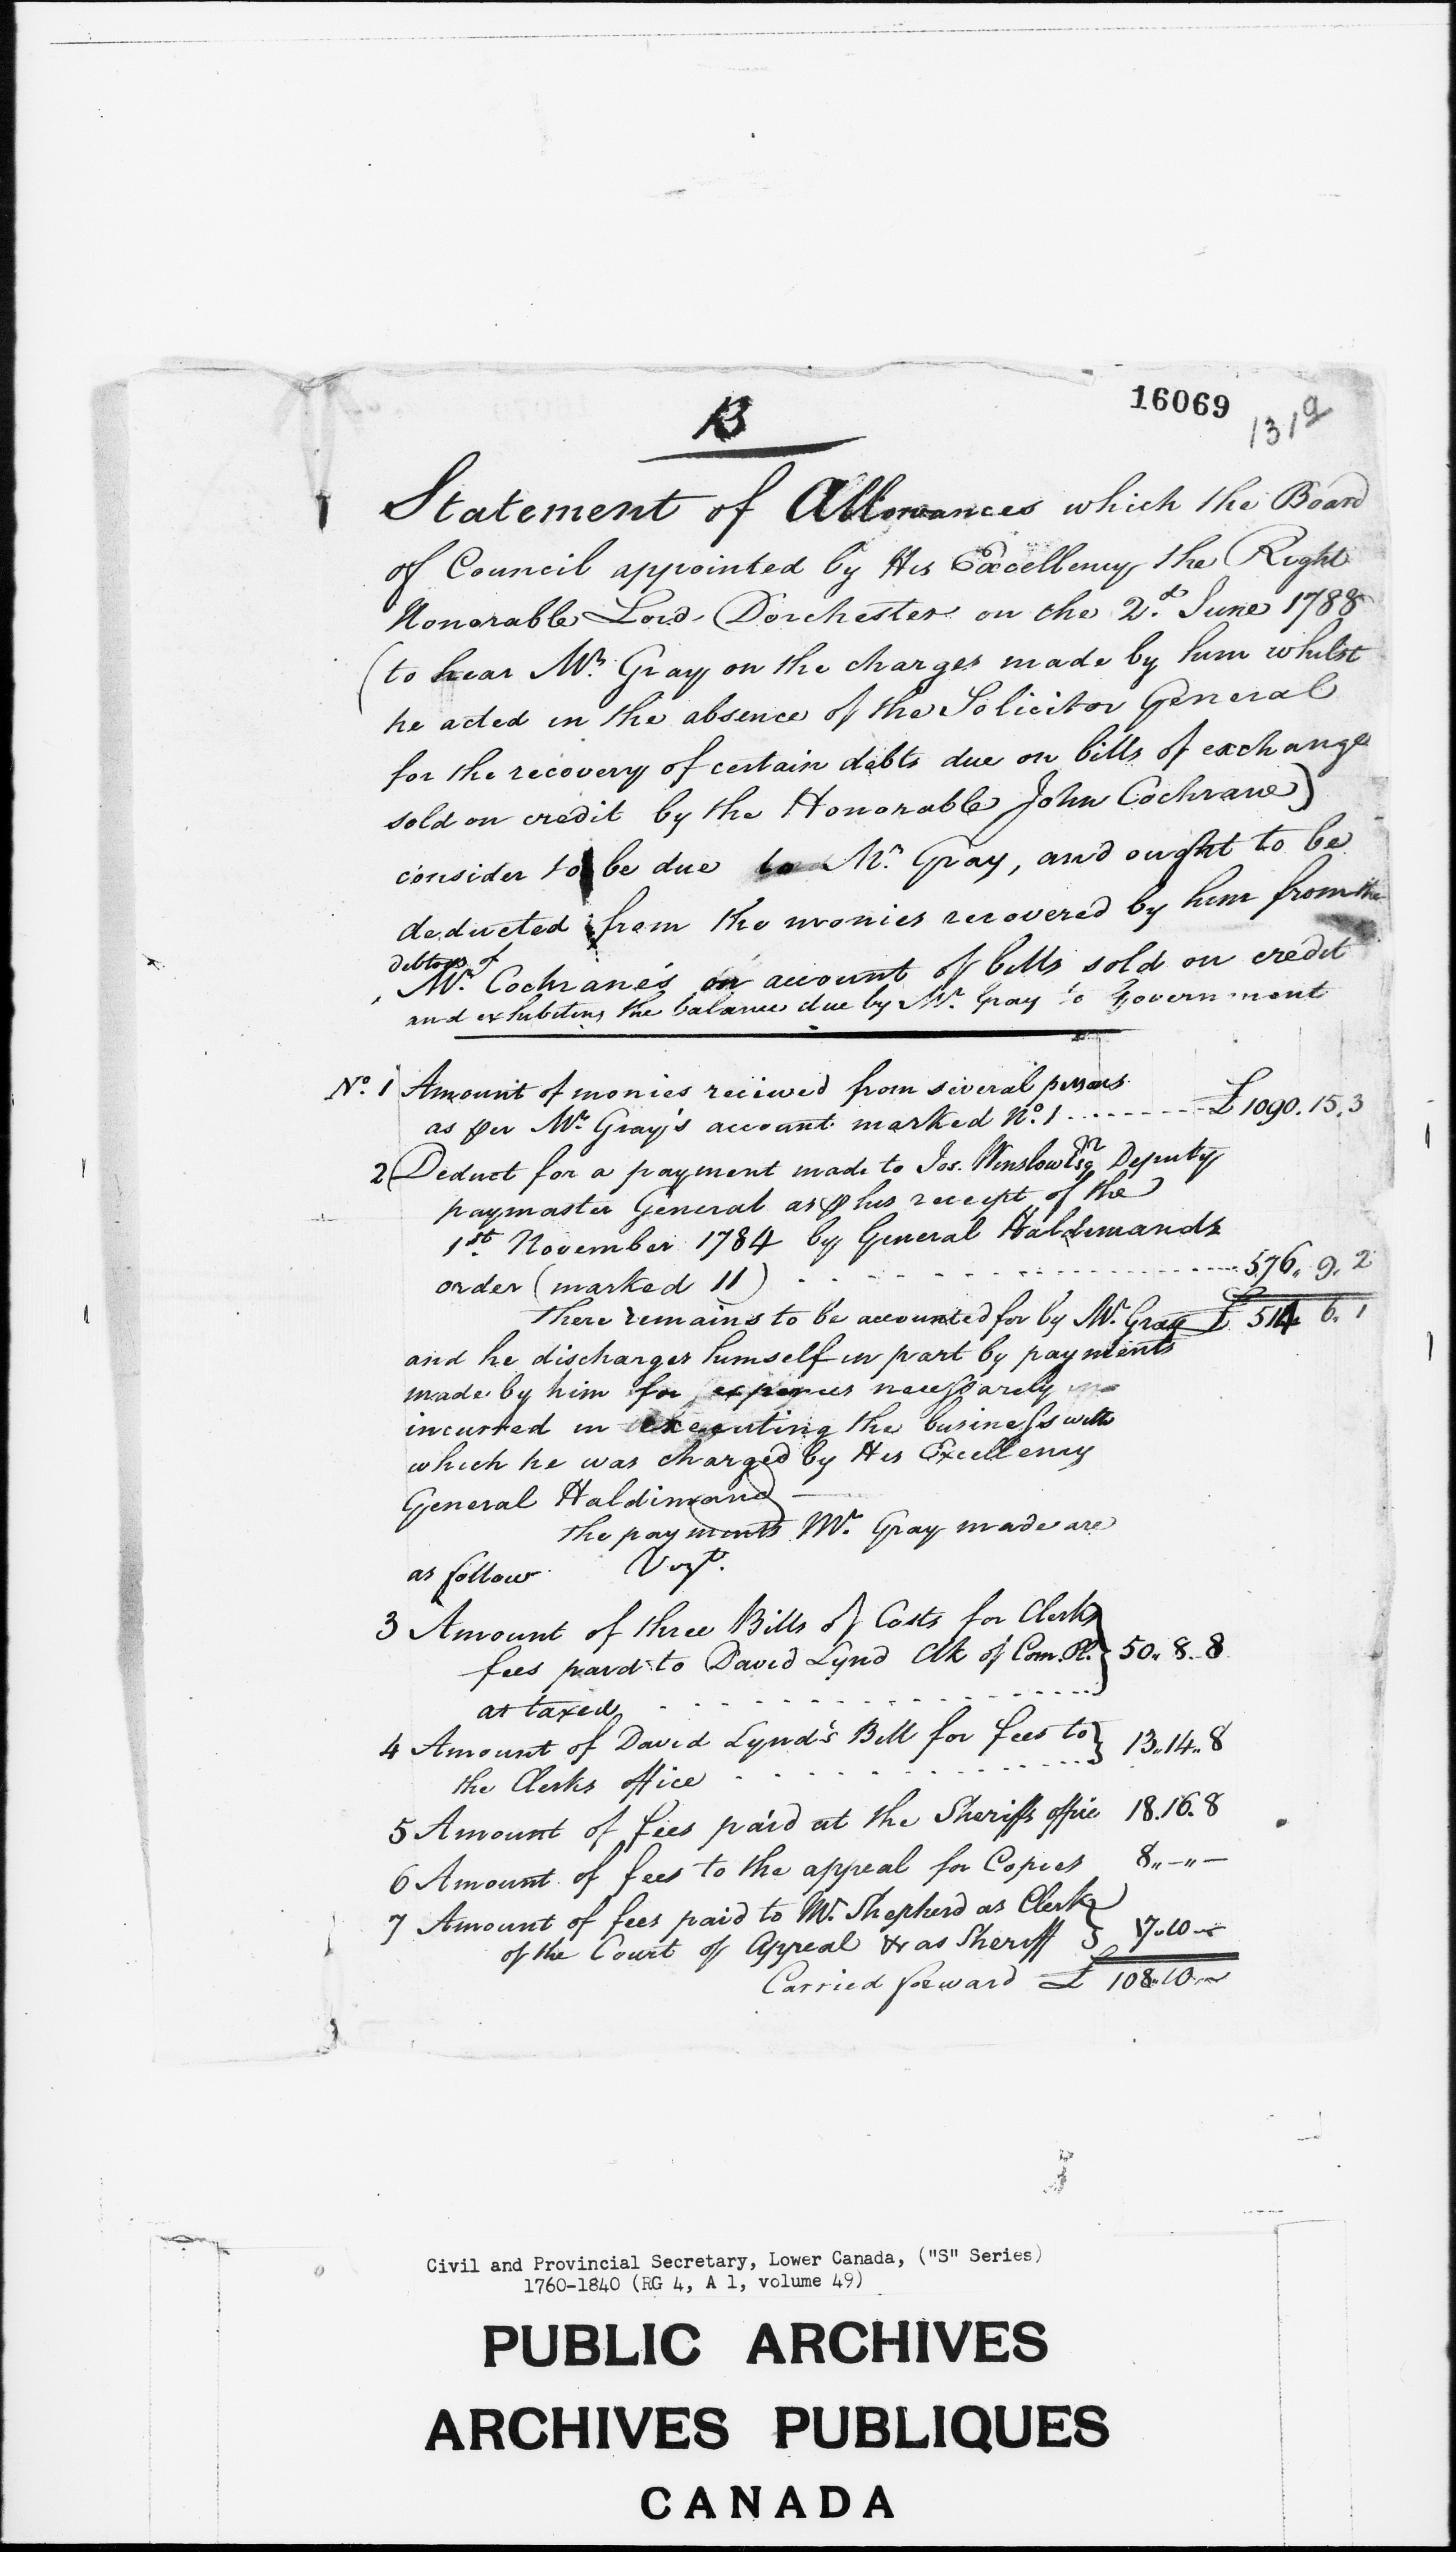 B
16069
1319
Statement of Allowances which the Board
of Council appointed by His Excellency the Right
Honorable Lord Dorchester on the 2.d June 1788
(to hear Mr. Gray on the charges made by him whilst
he acted in the absence of the Solicitor General
for the recovery of certain debts due on bills of exchange
sold on credit by the Honorable John Cochrane)
consider to be due to Mr. Gray, and ought to be
deducted from the monies recovered by him from the
debtors of
Mr. Cochrane's on account of bills sold on credit
and exhibiting the balance due by Mr. Gray to Government
No. 1 Amount of monies recieved from several persons
as per Mr. Gray's account marked No. 1 - - - - - - - £ 1090. 15. 3
2 Deduct for a payment made to Jos. Winslow Esqr Deputy
paymaster General as P his receipt of the
1st. November 1784 by General Haldimands
order (marked 11) - - - - - - - - - - 576. 9. 2
There remains to be accounted for by Mr. Gray £ 514 6. 1
and he discharges himself in part by payments
made by him for expences necessarily
incurred in executing the business with
which he was charged by His Excellency
General Haldimand —
The payments Mr. Gray made are
as follow Vizt.
3 Amount of three Bills of Costs for Clerks
fees paid to David Lynd Clk of Com. Pl. } 50.. 8.. 8
as taxed - - - - - - - - - -
4 Amount of David Lynd's Bill for fees to } 13..14.. 8
the Clerks office - - - - - - - -
5 Amount of fees paid at the Sheriffs office 18. 16. 8
6 Amount of fees to the appeal for Copies 8.. — .. —
7 Amount of fees paid to Mr. Shepherd as Clerk
of the Court of Appeal & as Sheriff } 17.10 —
Carried forward £ 108..10..—
Civil and Provincial Secretary, Lower Canada, ("S" Series)
1760-1840 (RG 4, A 1, volume 49)
PUBLIC ARCHIVES
ARCHIVES PUBLIQUES
CANADA